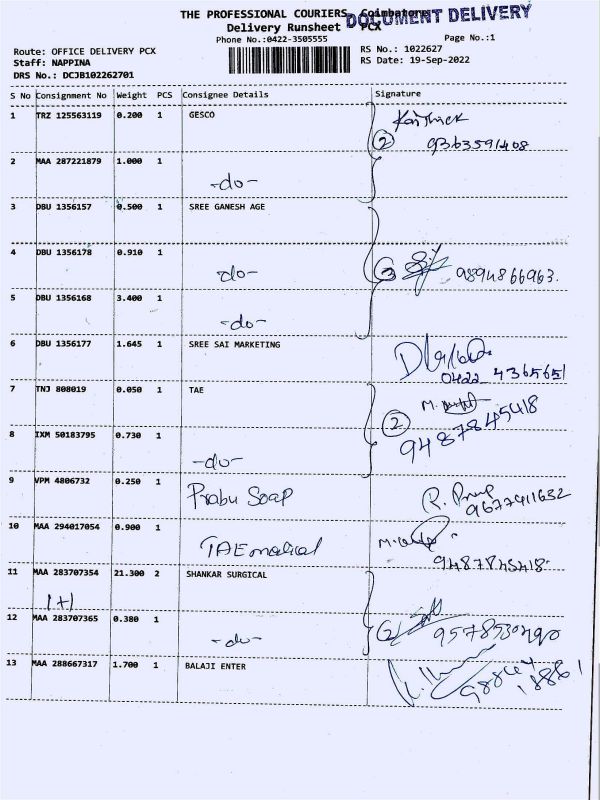 THE PROFESSIONAL COURIERS, Coimbatore
DOCUMENT DELIVERY
Delivery Runsheet PCX
Phone No.:0422-3505555 Page No.:1
Route: OFFICE DELIVERY PCX RS No.: 1022627
Staff: NAPPINA RS Date: 19-Sep-2022
DRS No.: DCJB102262701
S No Consignment No Weight PCS Consignee Details Signature
1 TRZ 125563119 0.200 1 GESCO Karthick
2 9363591408
2 MAA 287221879 1.000 1
-do-
3 DBU 1356157 0.500 1 SREE GANESH AGE
4 DBU 1356178 0.910 1
-do- 3 9894866963.
5 DBU 1356168 3.400 1
-do-
6 DBU 1356177 1.645 1 SREE SAI MARKETING
0422 4365651
7 TNJ 808019 0.050 1 TAE
M.
2 9487845418
8 IXM 50183795 0.730 1
-do-
9 VPM 4806732 0.250 1 Prabu Soap
9677911632
10 MAA 294017054 0.900 1
TAE
9487845418.
11 MAA 283707354 21.300 2 SHANKAR SURGICAL
1+1
12 MAA 283707365 0.380 1
-do- 2 9578530490
13 MAA 288667317 1.700 1 BALAJI ENTER